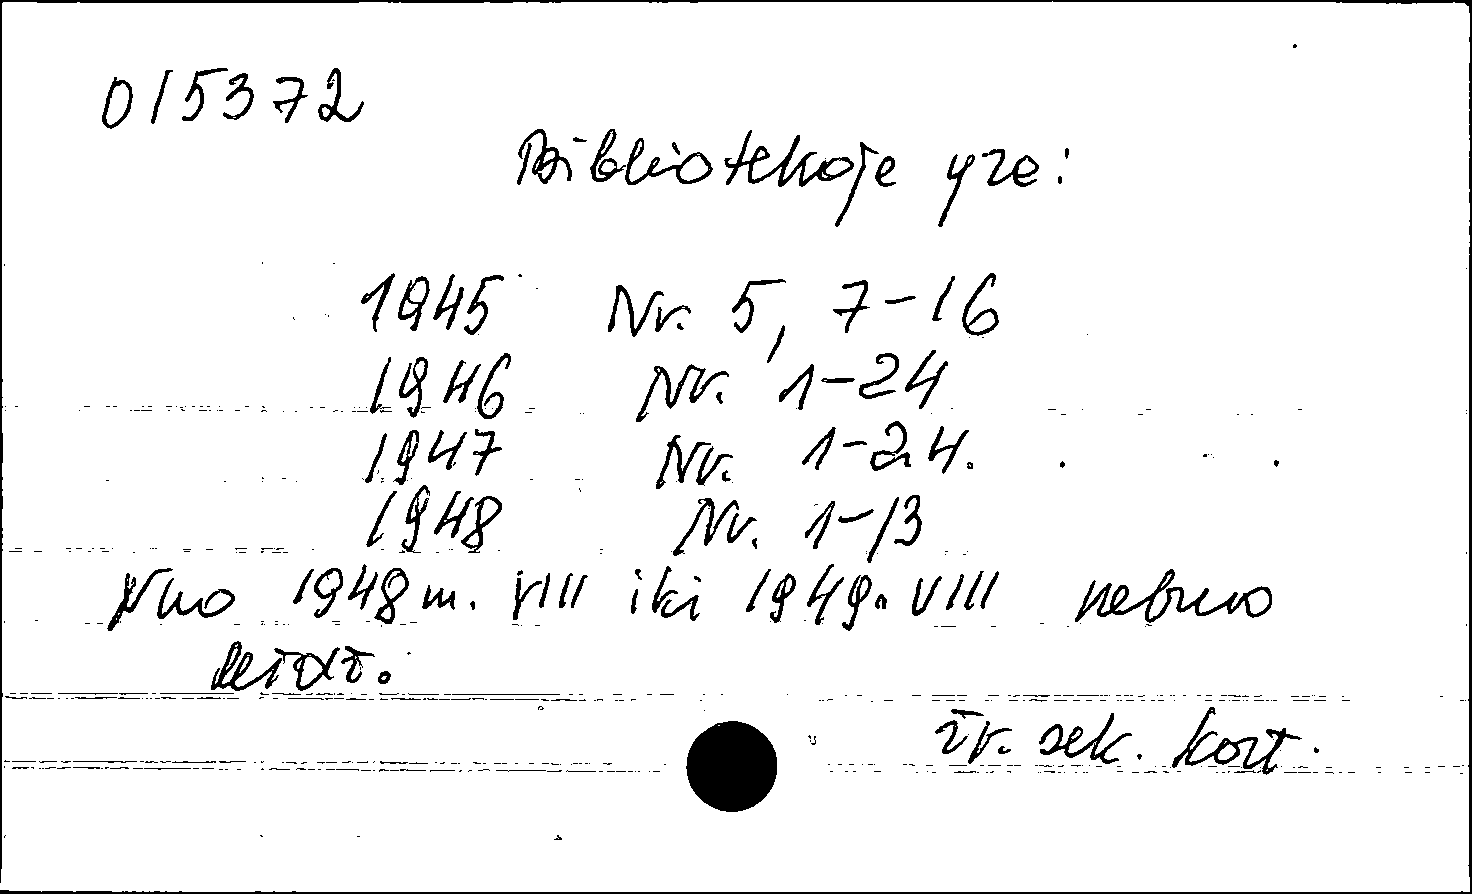 015372
Bibliotekoje yra:
1945 Nr. 5, 7-16
1946 Nr. 1-24
1947 Nr. 1-24.
1948 Nr. 1-13
Nuo 1948 m. VIII iki 1949. VIII nebuvo
leidž.
žr. sek. kort.